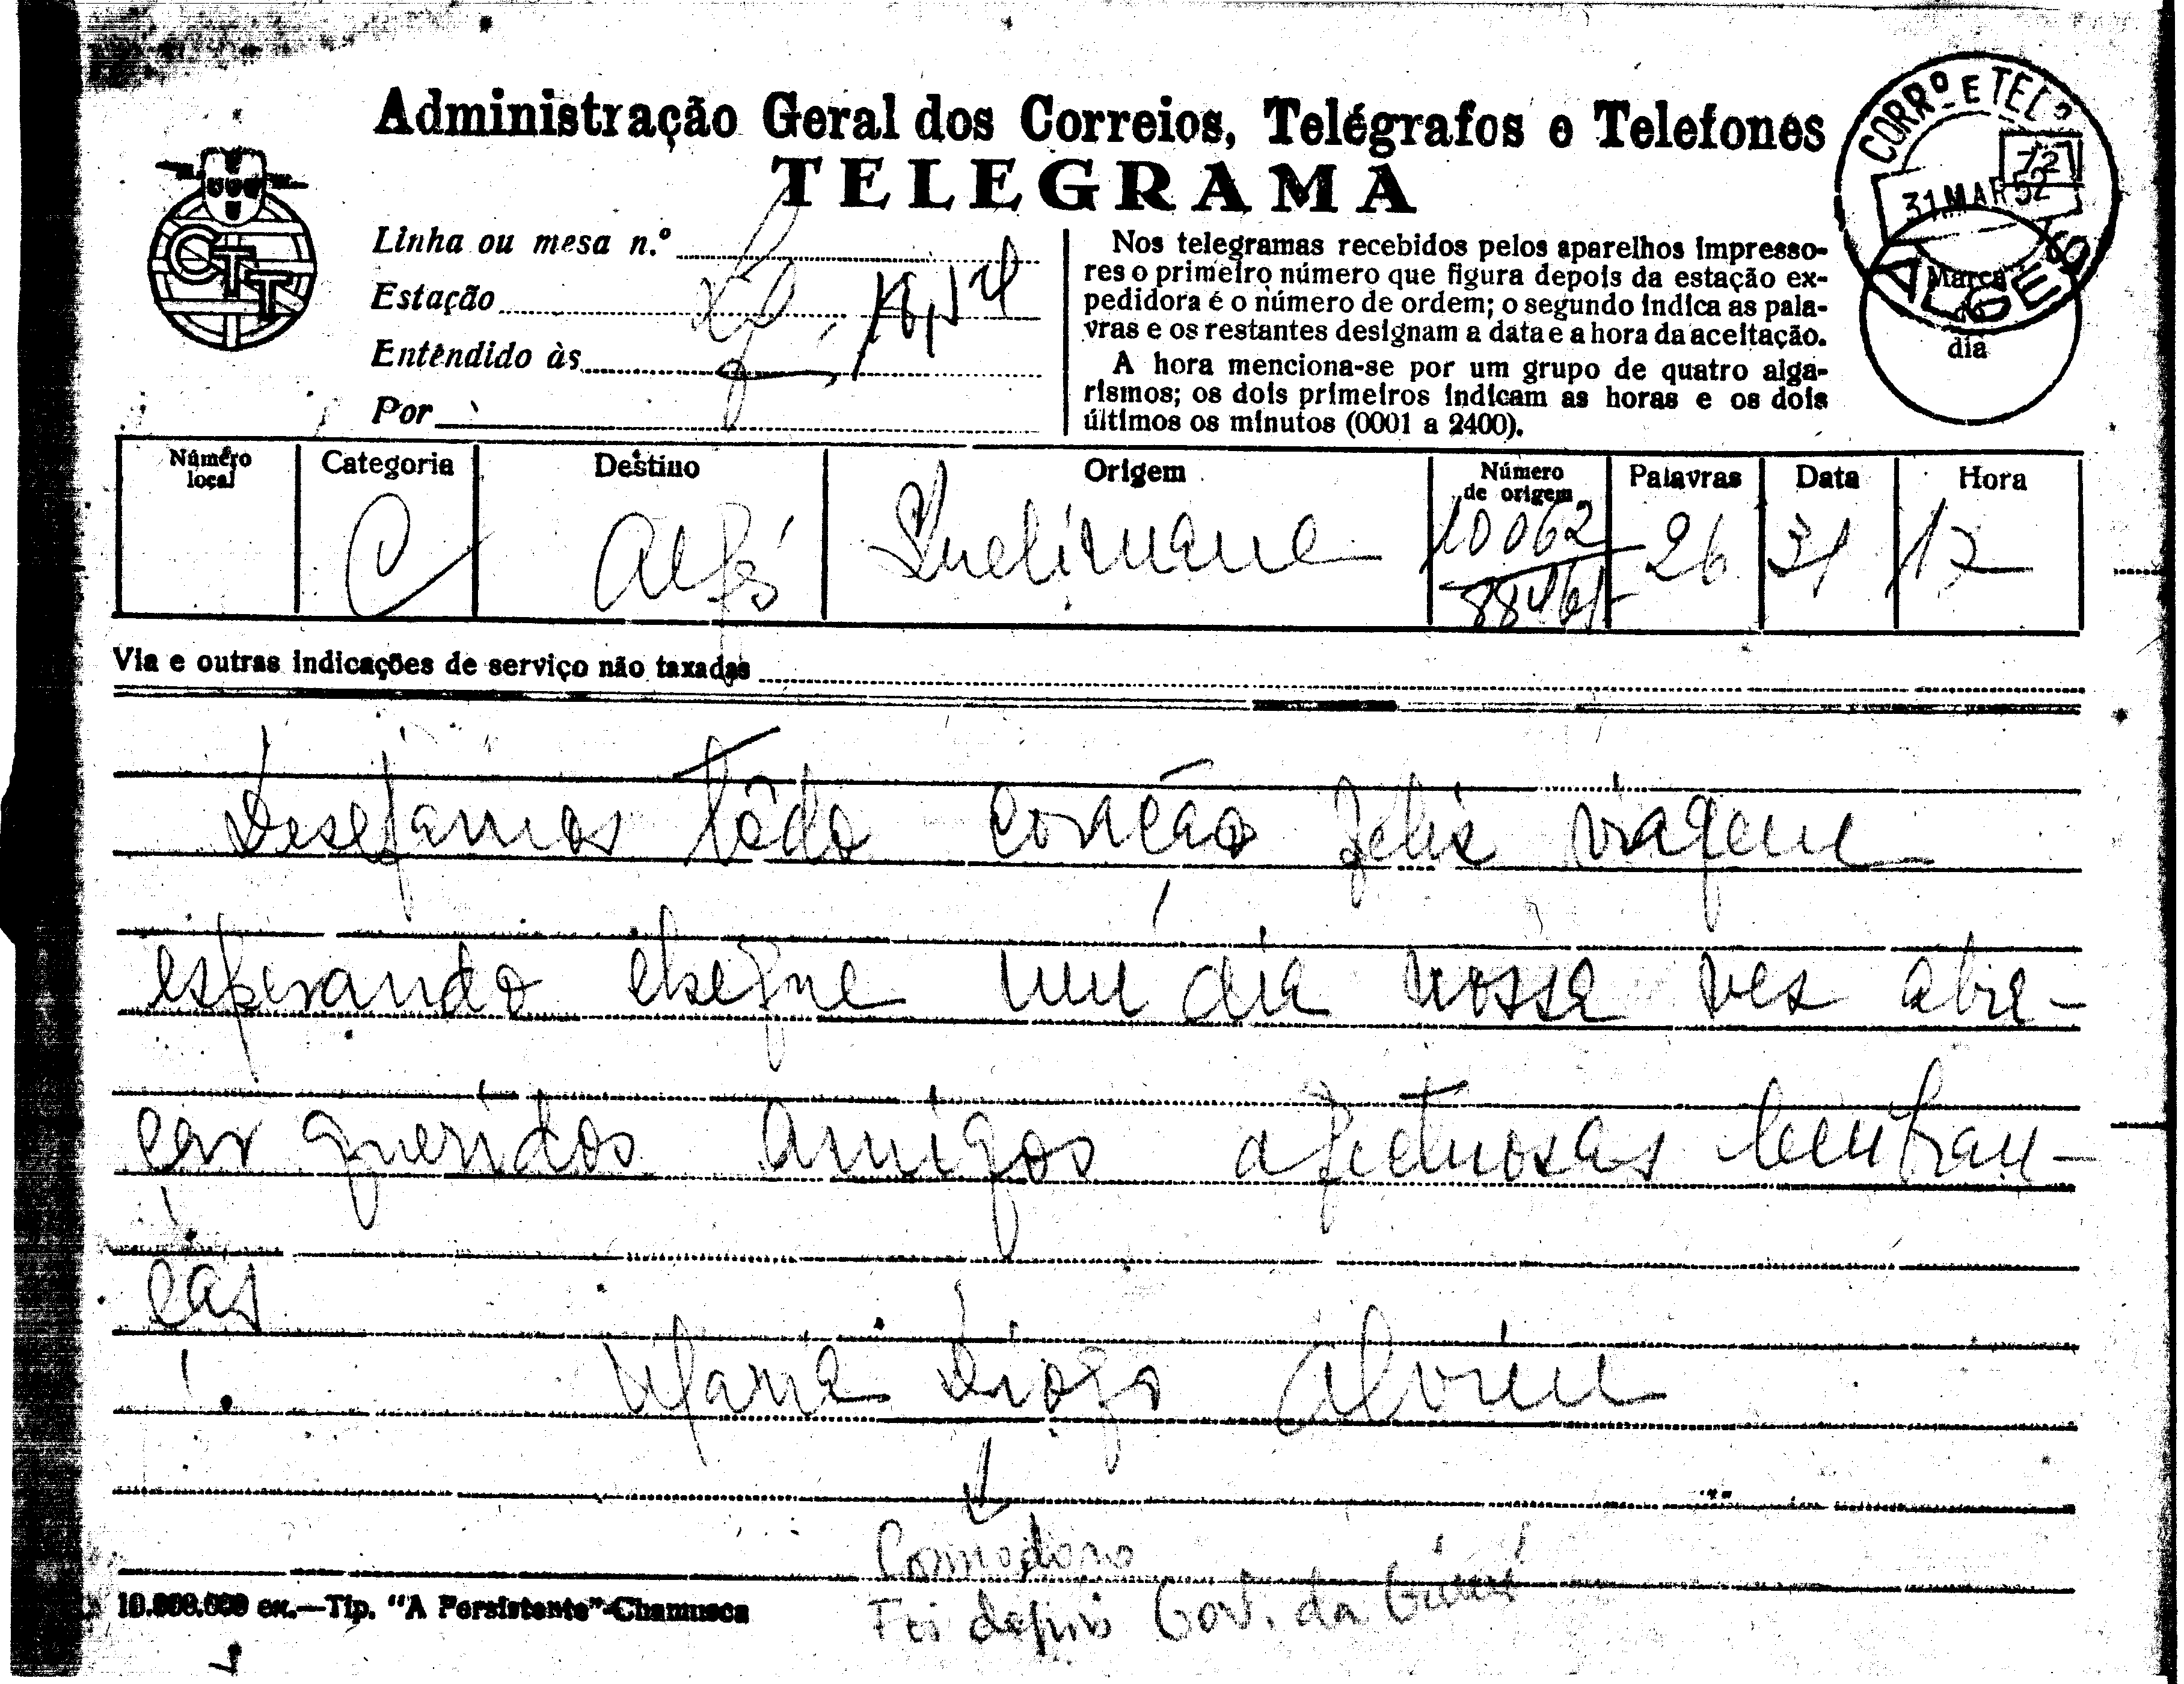 Administração Geral dos Correios, Telégrafos e Telefones
TELEGRAMA
CORRº E TELº
72
31 MAR 52
ALGÉS
Marca
do
dia
CTT
Linha ou mesa n.º
Estação
Entendido às
Por
Nos telegramas recebidos pelos aparelhos impresso-
res o primeiro número que figura depois da estação ex-
pedidora é o número de ordem; o segundo indica as pala-
vras e os restantes designam a data e a hora da aceitação.
A hora menciona-se por um grupo de quatro alga-
rismos; os dois primeiros indicam as horas e os dois
últimos os minutos (0001 a 2400).
Número local Categoria Destino Origem Número de origem Palavras Data Hora
C Algés Quelimane 10062 26 31 17
88461
Via e outras indicações de serviço não taxadas
Desejamos tôdo coração feliz viagem
esperando chegue um dia nossa vez abra-
çar queridos amigos afectuosas lembran-
ças
Maria Diogo Alvim
Comodoro
Foi depois Gov. da Guiné
10.000.000 ex.—Tip. "A Persistente"-Chamusca